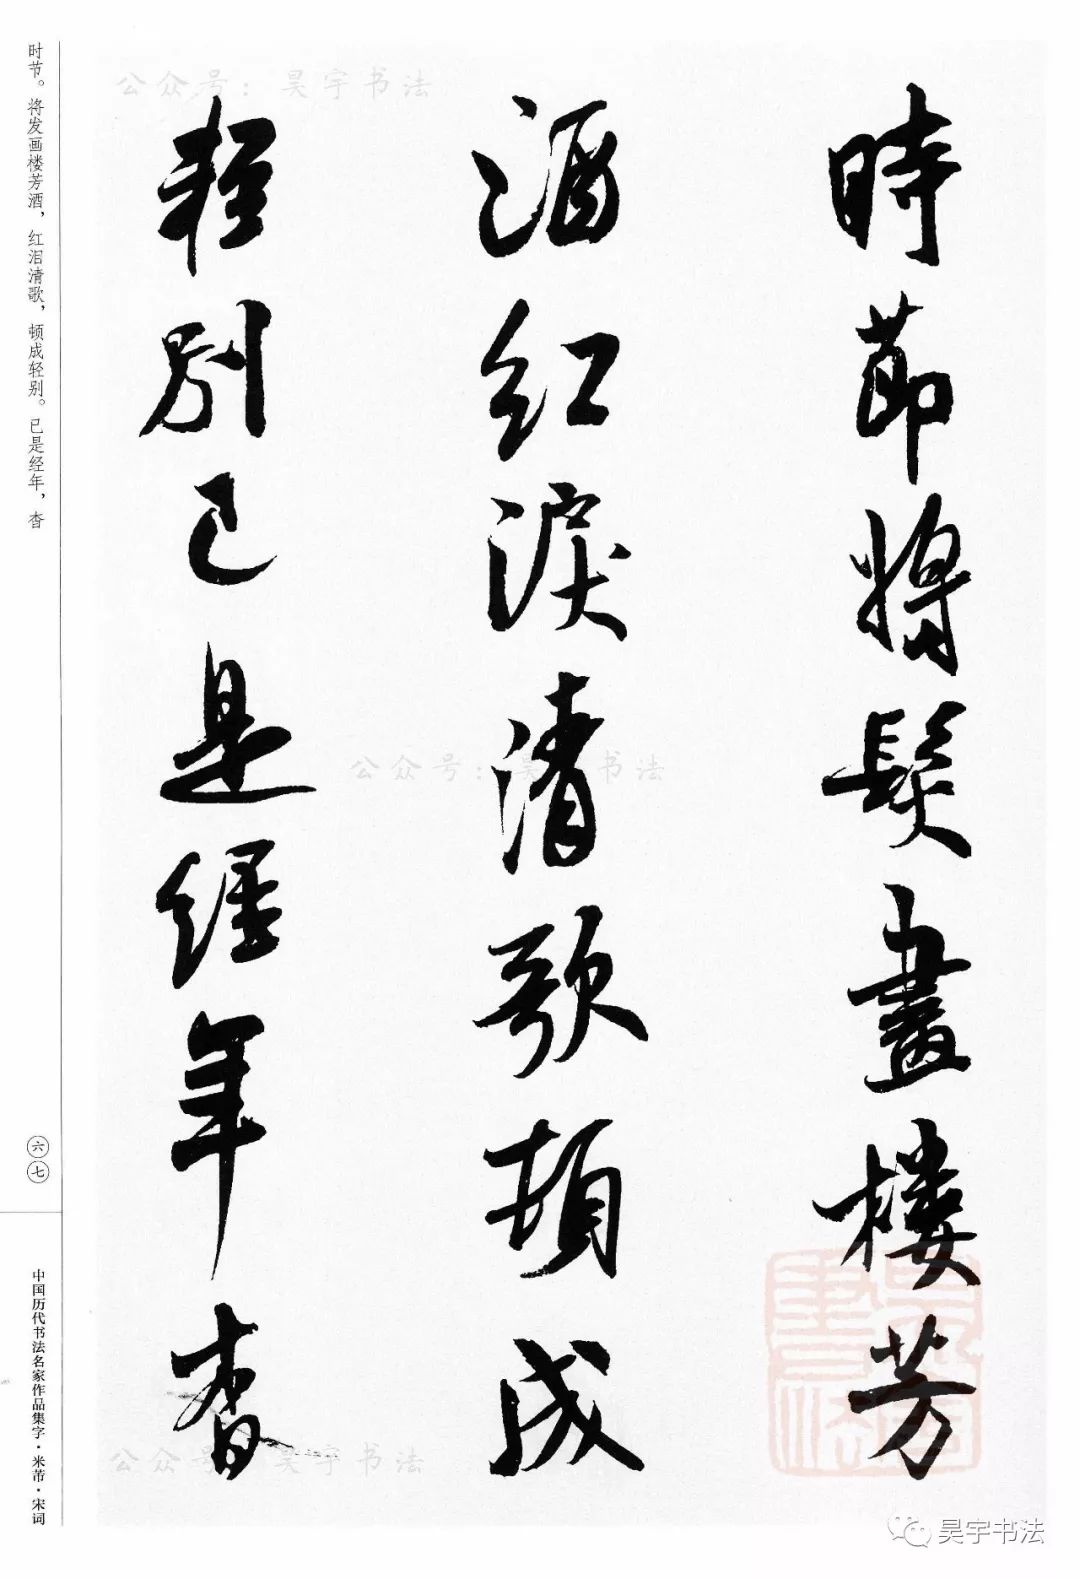 時節將髮畫樓芳
酒紅淚清歌頓成
輕別已是經年杳
时节。将发画楼芳酒，红泪清歌，顿成轻别。已是经年，杳
六七
中国历代书法名家作品集字·米芾·宋词
公众号：昊宇书法
公众号：昊宇书法
公众号：昊宇书法
昊宇书法